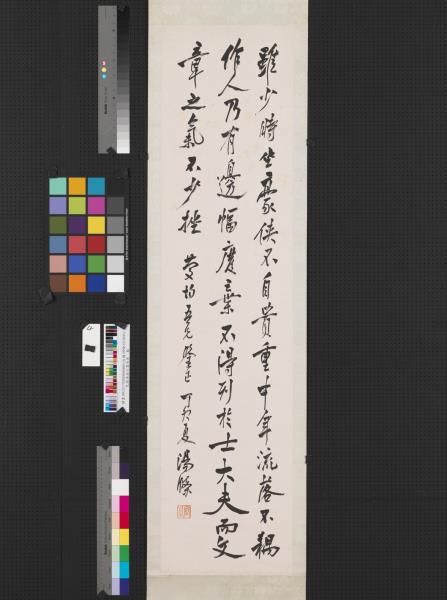 雖少時坐豪俠不自貴重中年流落不耦
作人乃有邊幅度棄不得列於士大夫而文
章之氣不少挫
吾兄鑒正 夏湯滌